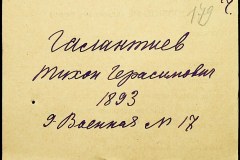 179
Галантиев
Тихон Герасимович
1893
9 Военная № 17